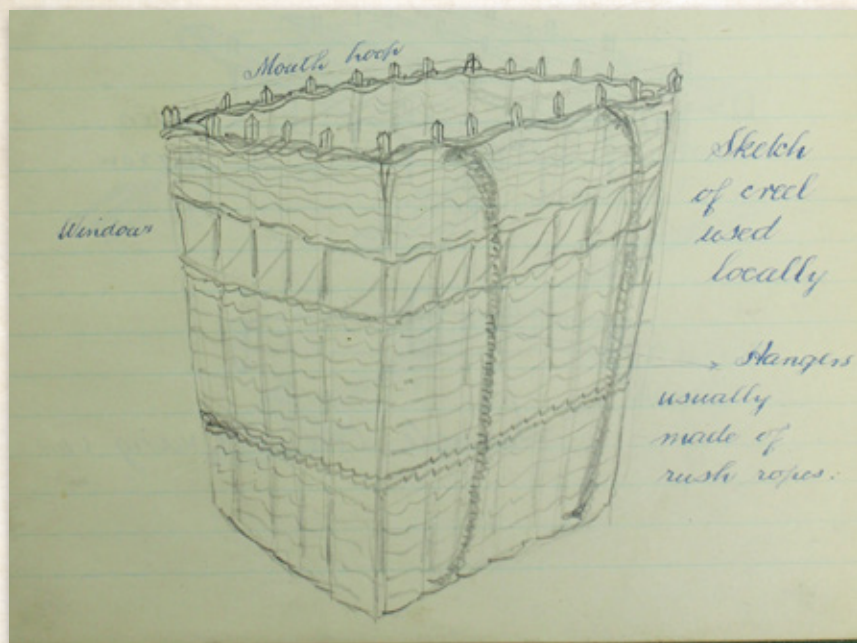 Mouth hoop
Windows
Sketch
of creel
used
locally
Hangers
usually
made of
rush ropes.